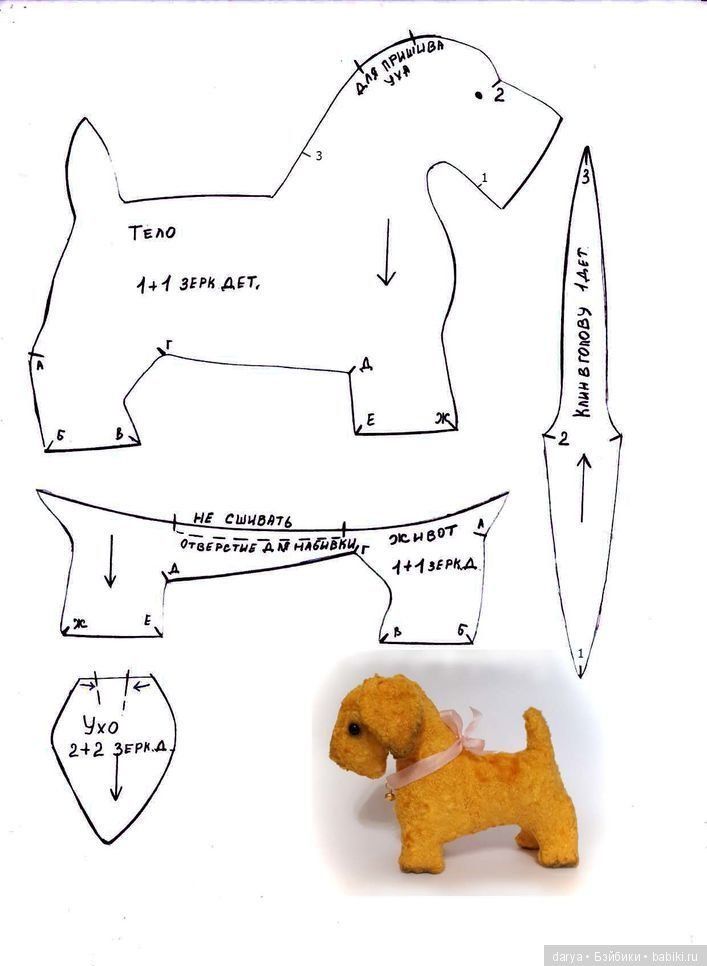 ДЛЯ ПРИШИВА
УХА
2
3
1
3
ТЕЛО
1+1 ЗЕРК ДЕТ.
КЛИН В ГОЛОВУ 1 ДЕТ.
А
Г
Д
Б
В
Е
Ж
2
НЕ СШИВАТЬ
ОТВЕРСТИЕ ДЛЯ НАБИВКИ
ЖИВОТ
А
Г
1+1 ЗЕРК.Д.
Д
Ж
Е
В
Б
1
УХО
2+2 ЗЕРК.Д.
darya • Бэйбики • babiki.ru